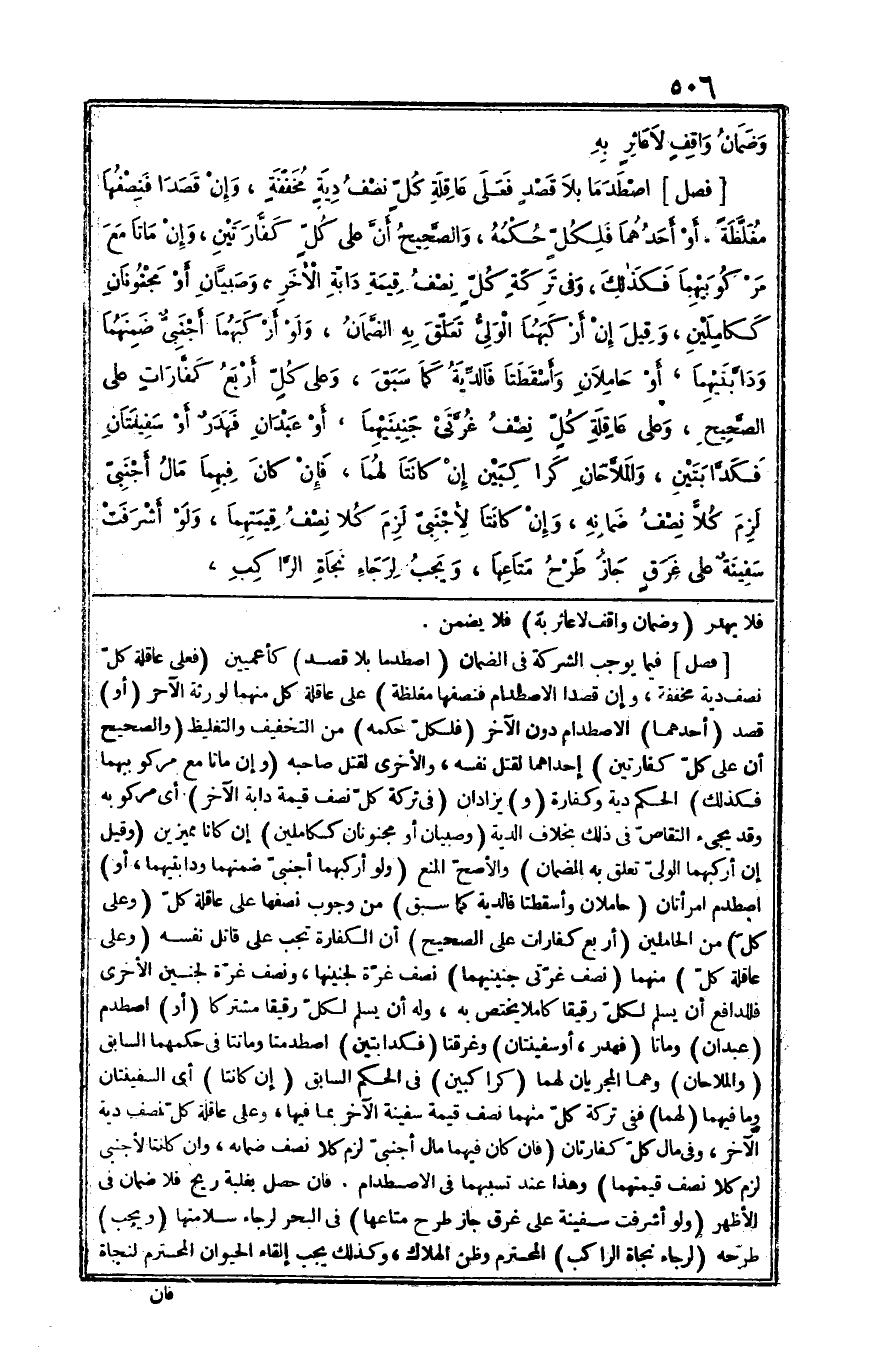 ٥٠٦
وَضَمَانُ وَاقِفٍ لاَعَاثِرٍ بِهِ
[ فصل ] اصْطَدَمَا بلاَ قَصْدٍ فَعَلَى عَاقِلَةِ كُلّ نصْفُ دِيَةٍ مُخَفَّفَةٍ ، وَإِنْ قَصَدَا فَنِصْفُهَا
مُغَلَّظَةً . أَوْ أَحَدُهُمَا فَلِكُلّ حُكْمُهُ ، وَالصَّحِيحُ أَنَّ على كُلّ كَفَّارَتَيْنِ ، وَإِنْ مَاتَا مَعَ
مَرْكُوبَيْهِمَا فَكَذٰلِكَ ، وَفى تَرِكَةِ كُلّ نِصْفُ قِيمَةِ دَابَّةِ الْآخَرِ ، وَصَبِيَّانِ أَوْ مَجْنُونَانِ
كَكَامِلَيْنِ ، وَقِيلَ إِنْ أَرْكَبَهُمَا الْوَلِىُّ تَعَلَّقَ بِهِ الضَّمَانُ ، وَلَوْ أَرْكَبَهُمَا أَجْنَبِىٌّ ضَمِنَهُمَا
وَدَابَّتَيْهِمَا ، أَوْ حَامِلاَنِ وَأَسْقَطَتَا فَالدِّيَةُ كَمَا سَبَقَ ، وَعَلى كُلّ أَرْبَعُ كَفَّارَاتٍ على
الصَّحِيحِ ، وَعَلى عَاقِلَةِ كُلّ نِصْفُ غُرَّتَىْ جَنِينَيْهِمَا ، أَوْ عَبْدَانِ فَهَدَرٌ أَوْ سَفِينَتَانِ
فَكَدَابَّتَيْنِ ، وَالمَلاَّحَانِ كَرَاكِبَيْنِ إِنْ كَانَتَا لَهُمَا ، فَإِنْ كَانَ فِيهِمَا مَالُ أَجْنَبِىّ
لَزِمَ كُلاًّ نِصْفُ ضَمَانِهِ ، وَإِنْ كَانَتَا لِأَجْنَبِىّ لَزِمَ كُلا نِصْفُ قِيمَتِهِمَا ، وَلَوْ أَشْرَفَتْ
سَفِينَةٌ على غَرَقٍ جَازَ طَرْحُ مَتَاعِهَا ، وَيَجِبُ لِرَجَاءِ نَجَاةِ الرَّاكِبِ ،
فلا يهدر ( وضمان واقف لاعاثر به ) فلا يضمن .
[ فصل ] فيما يوجب الشركة فى الضمان ( اصطدما بلا قصد ) كأعميين ( فعلى عاقلة كلّ
نصف دية مخففة ، وإن قصدا الاصطدام فنصفها مغلظة ) على عاقلة كل منهما لورثة الآخر ( أو )
قصد ( أحدهما ) الاصطدام دون الآخر ( فلكل حكمه ) من التخفيف والتغليظ ( والصحيح
أن على كلّ كفارتين ) إحداهما لقتل نفسه ، والأخرى لقتل صاحبه ( وإن ماتا مع مركوبيهما
فكذلك ) الحكم دية وكفارة ( و ) يزادان ( فى تركة كلّ نصف قيمة دابة الآخر ) أى مركوبه
وقد يجىء التقاصّ فى ذلك بخلاف الدية ( وصبيان أو مجنونان ككاملين ) إن كانا مميزين ( وقيل
إن أركبهما الولىّ تعلق به الضمان ) والأصحّ المنع ( ولو أركبهما أجنبىّ ضمنهما ودابتيهما ، أو )
اصطدم امرأتان ( حاملان وأسقطتا فالدية كما سبق ) من وجوب نصفها على عاقلة كلّ ( وعلى
كلّ ) من الحاملين ( أربع كفارات على الصحيح ) أن الكفارة تجب على قاتل نفسه ( وعلى
عاقلة كلّ ) منهما ( نصف غرّتى جنينيهما ) نصف غرّة لجنينها ، ونصف غرّة لجنين الأخرى
فللدافع أن يسلم لكلّ رقيقا كاملا يختص به ، وله أن يسلم لكلّ رقيقا مشتركا ( أو ) اصطدم
( عبدان ) وماتا ( فهدر ، أوسفينتان ) وغرقتا ( فكدابتين ) اصطدمتا وماتتا فى حكمهما السابق
( والملاحان ) وهما المجريان لهما ( كراكبين ) فى الحكم السابق ( إن كانتا ) أى السفينتان
وما فيهما ( لهما ) ففى تركة كلّ منهما نصف قيمة سفينة الآخر بما فيها ، وعلى عاقلة كلّ نصف دية
الآخر ، وفى مال كلّ كفارتان ( فان كان فيهما مال أجنبىّ لزم كلا نصف ضمانه ، وان كانتا لأجنبى
لزم كلا نصف قيمتهما ) وهذا عند تسببهما فى الاصطدام . فان حصل بغلبة ريح فلا ضمان فى
الأظهر ( ولو أشرفت سفينة على غرق جاز طرح متاعها ) فى البحر لرجاء سلامتها ( ويجب )
طرحه ( لرجاء نجاة الراكب ) المحترم وظن الهلاك ، وكذلك يجب إلقاء الحيوان المحترم لنجاة
فان